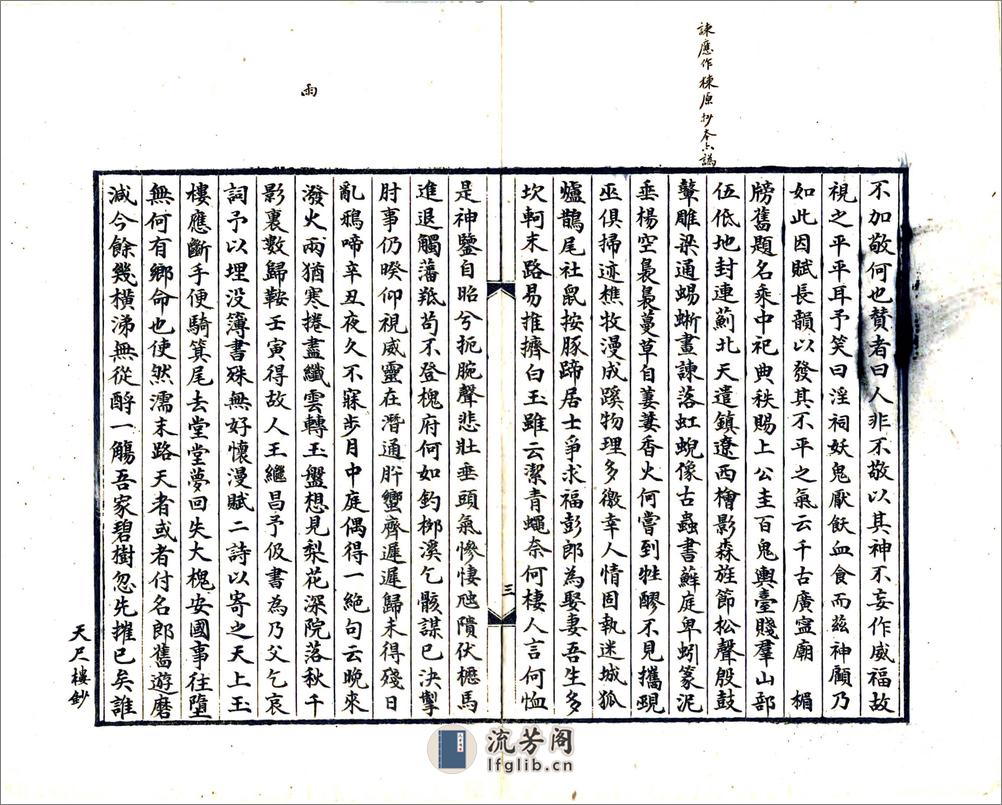 諫應作棟原抄本亦譌
雨
不加敬何也贊者曰人非不敬以其神不妄作威福故
視之平平耳予笑曰淫祠妖鬼厭飫血食而茲神顧乃
如此因賦長韻以發其不平之氣云千古廣寍廟　楣
牓舊題名乘中祀典秩賜上公圭百鬼輿臺賤羣山部
伍低地封連薊北天遣鎮遼西檜影森旌節松聲殷鼓
鼙雕梁通蜴蜥畫諫落虹蜺像古蟲書蘚庭卑蚓篆泥
垂楊空裊裊蔓草自萋萋香火何嘗到牲醪不見攜覡
巫俱掃迹樵牧漫成蹊物理多徼幸人情固執迷城狐
爐鵲尾社鼠按豚蹄居士爭求福彭郎為娶妻吾生多
坎軻末路易推擠白玉雖云潔青蠅奈何棲人言何恤
三
是神鑒自昭兮扼腕聲悲壯垂頭氣慘悽虺隤伏櫪馬
進退觸藩羝苟不登槐府何如釣桞溪乞骸謀已決掣
肘事仍暌仰視威靈在潛通肸蠁齊遲遲歸未得殘日
亂鴉啼辛丑夜久不寐步月中庭偶得一絶句云晚來
潑火兩猶寒捲盡纖雲轉玉盤想見梨花深院落秋千
影裏數歸鞍壬寅得故人王繼昌予伋書為乃父乞哀
詞予以埋没簿書殊無好懷漫賦二詩以寄之天上玉
樓應斷手便騎箕尾去堂堂夢回失大槐安國事往墮
無何有鄉命也使然濡末路天者或者付名郎舊遊磨
減今餘幾橫涕無從酹一觴吾家碧樹忽先摧已矣誰
天尺樓鈔
流芳阁
lfglib.cn